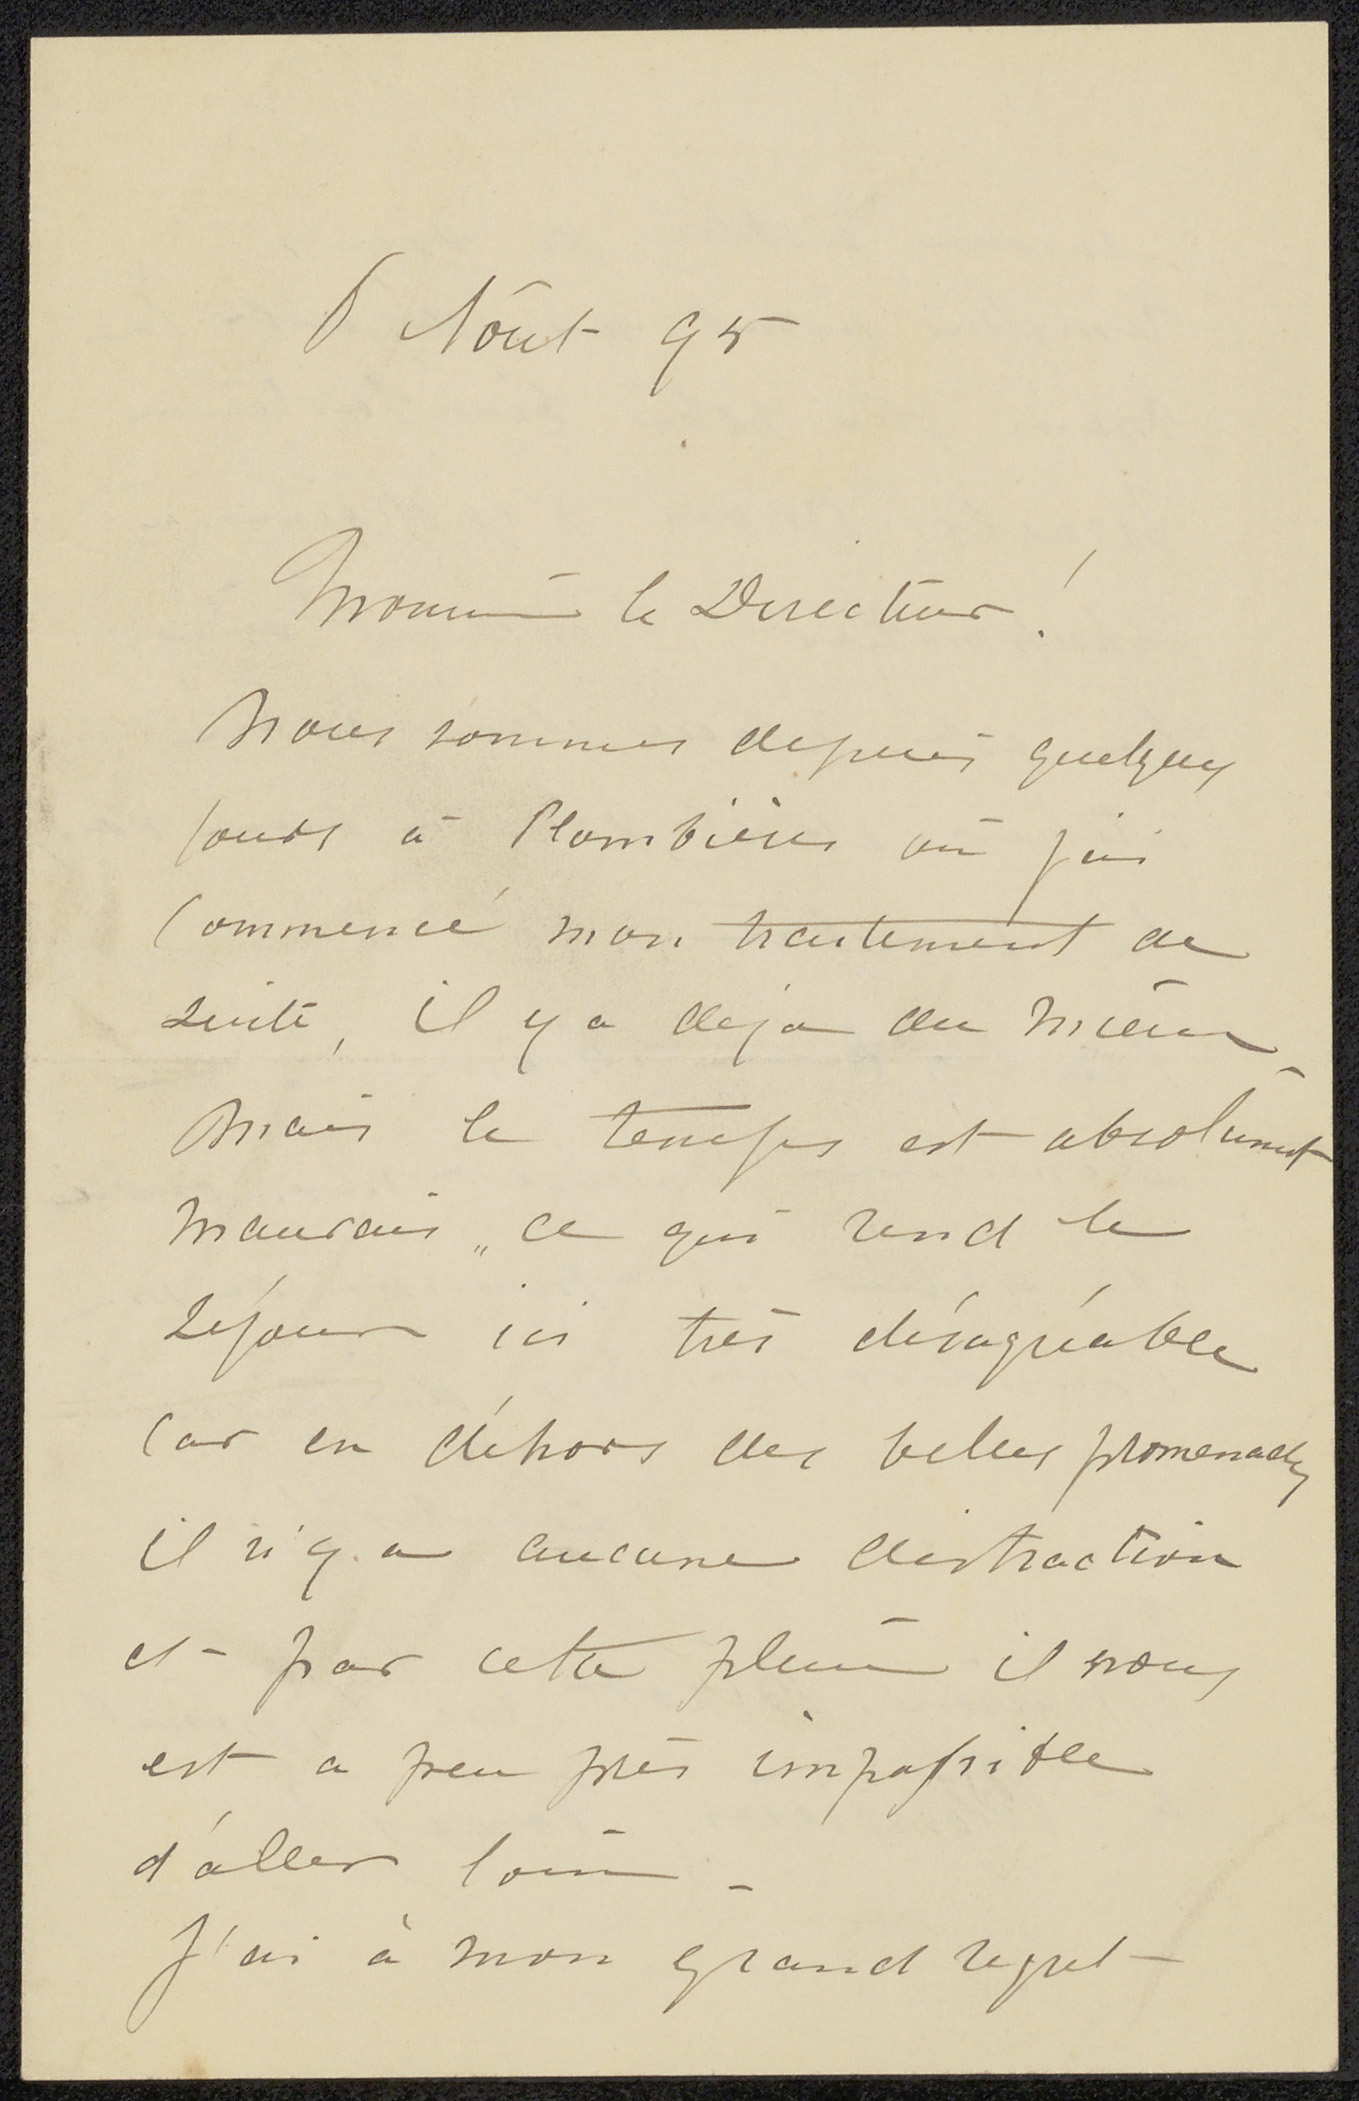 6 Aôut 95
Monsieur le Directeur!
Nous sommes depuis quelques
jours à Plombières où j'ai
commencé mon traitement de
suite, il y a deja du mieux -
Mais le temps est absolument
mauvais „ ce qui rend le
séjour ici très désagréable
car en déhors des belles promenades
il n'y a aucune distraction
et par cette pluie il nous
est a peu près impossible
d'aller loin -
J'ai à mon grand regret